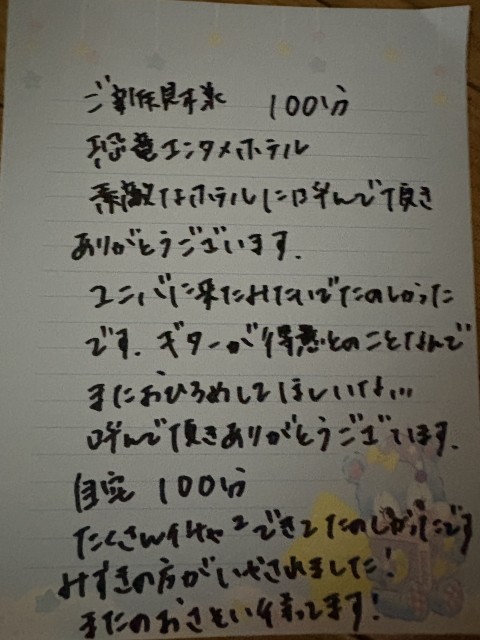 ご新規様 100分
恐竜エンタメホテル
素敵なホテルに呼んで頂き
ありがとうございます.
ユニバに来たみたいでたのしかった
です. ギターが得意とのことなんで
またおひろめしてほしいな...
呼んで頂きありがとうございます.
自宅 100分
たくさんイチャ²できてたのしかったです
みずきの方がいやされました!
またのおさそい待ってます!